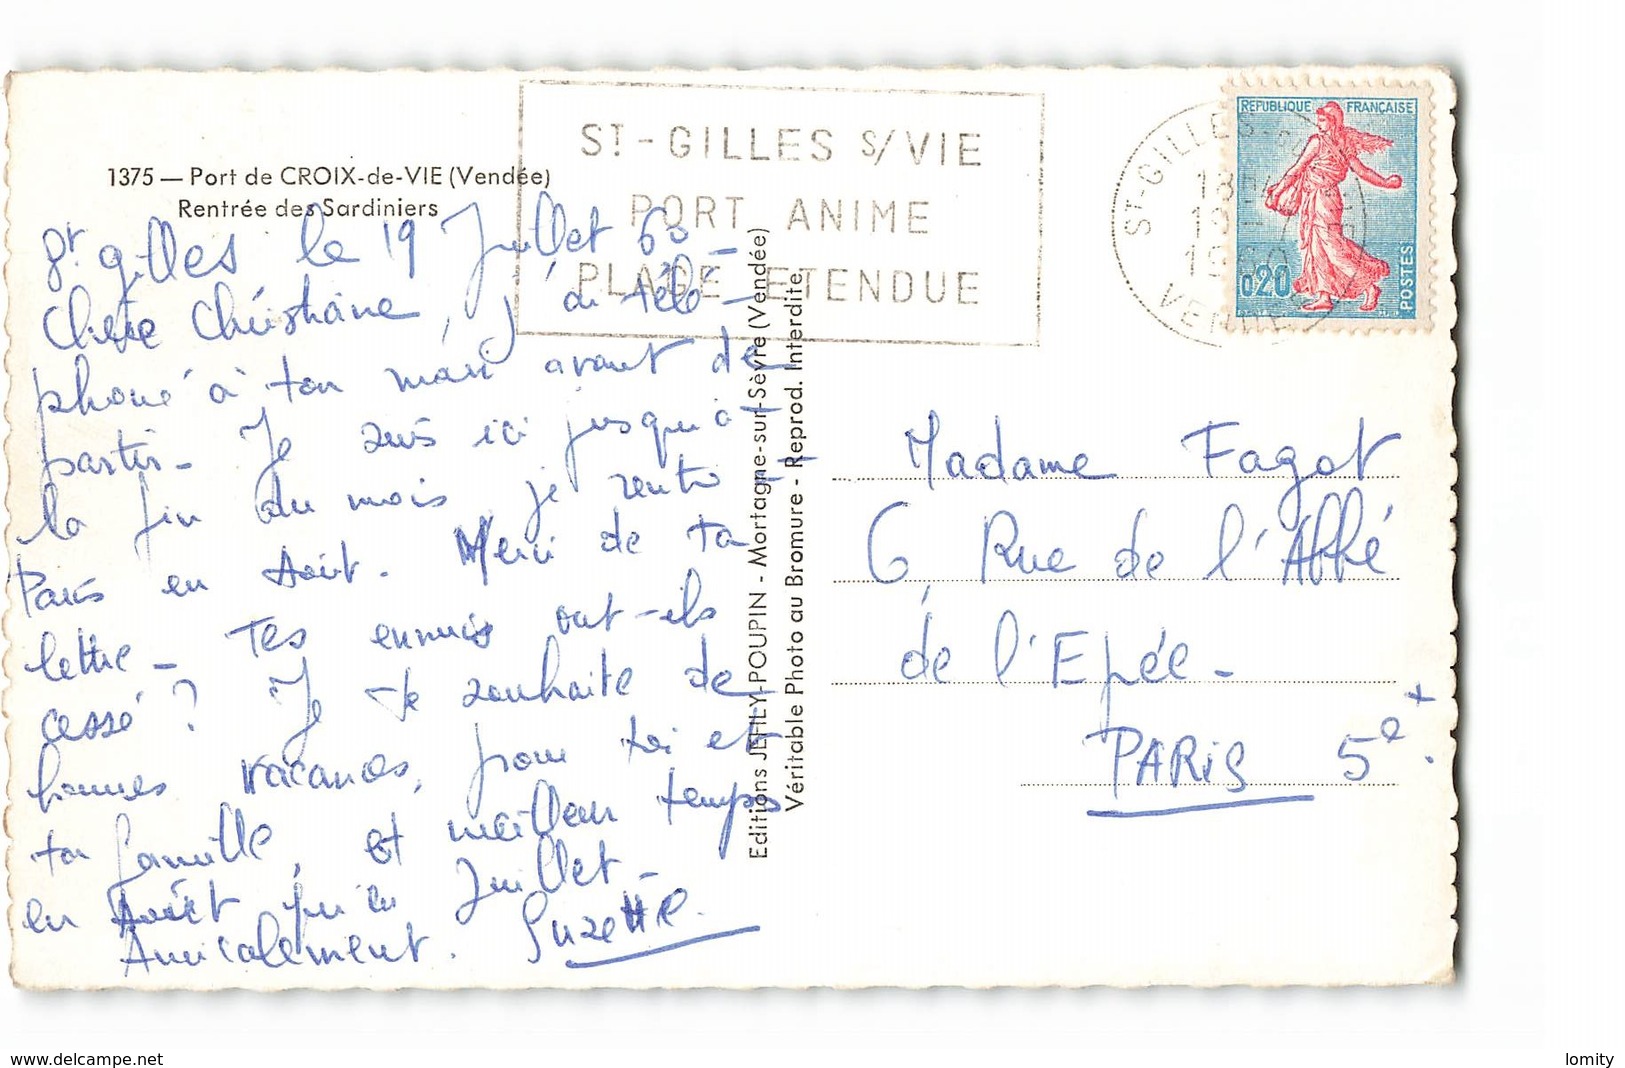 1375 — Port de CROIX-de-VIE (Vendée)
Rentrée des Sardiniers
ST-GILLES S/VIE
PORT ANIME
PLAGE ETENDUE
ST-GILLES
VENDEE
REPUBLIQUE FRANÇAISE
0,20
POSTES
St gilles le 19 Juillet 60 -
Chère Christiane, j'ai télé-
phoné à ton mari avant de
partir - Je suis ici jusqu'à
la fin du mois je rentre
Paris en Août. Merci de ta
lettre - Tes ennuis ont-ils
cessé ? Je te souhaite de
bonnes vacances, pour toi et
ta famille, et meilleur temps
en Août qu'en Juillet -
Amicalement. Suzette.
Editions JEFILY-POUPIN - Mortagne-sur-Sèvre (Vendée)
Véritable Photo au Bromure - Reprod. Interdite
Madame Fagot
6, Rue de l'Abbé
de l'Epée -
PARIS 5e
www.delcampe.net
lomity